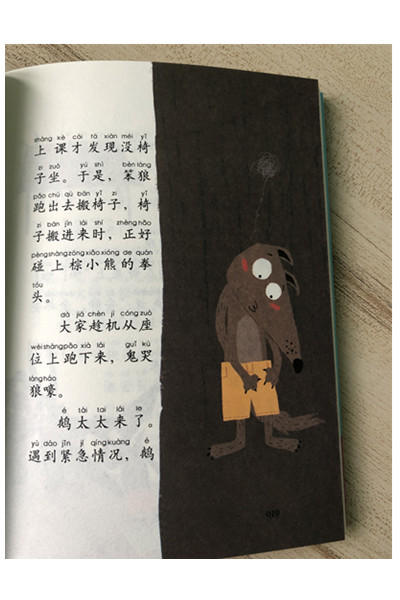 shàng kè cái fā xiàn méi yǐ
上课才发现没椅
zi zuò yú shì bèn láng
子坐。于是，笨狼
pǎo chū qù bān yǐ zi yǐ
跑出去搬椅子，椅
zi bān jìn lái shí zhèng hǎo
子搬进来时，正好
pèng shàng zōng xiǎo xióng de quán
碰上棕小熊的拳
tóu
头。
dà jiā chèn jī cóng zuò
大家趁机从座
wèi shàng pǎo xià lái guǐ kū
位上跑下来，鬼哭
láng háo
狼嚎。
é tài tai lái le
鹅太太来了。
yù dào jǐn jí qíng kuàng é
遇到紧急情况，鹅
019